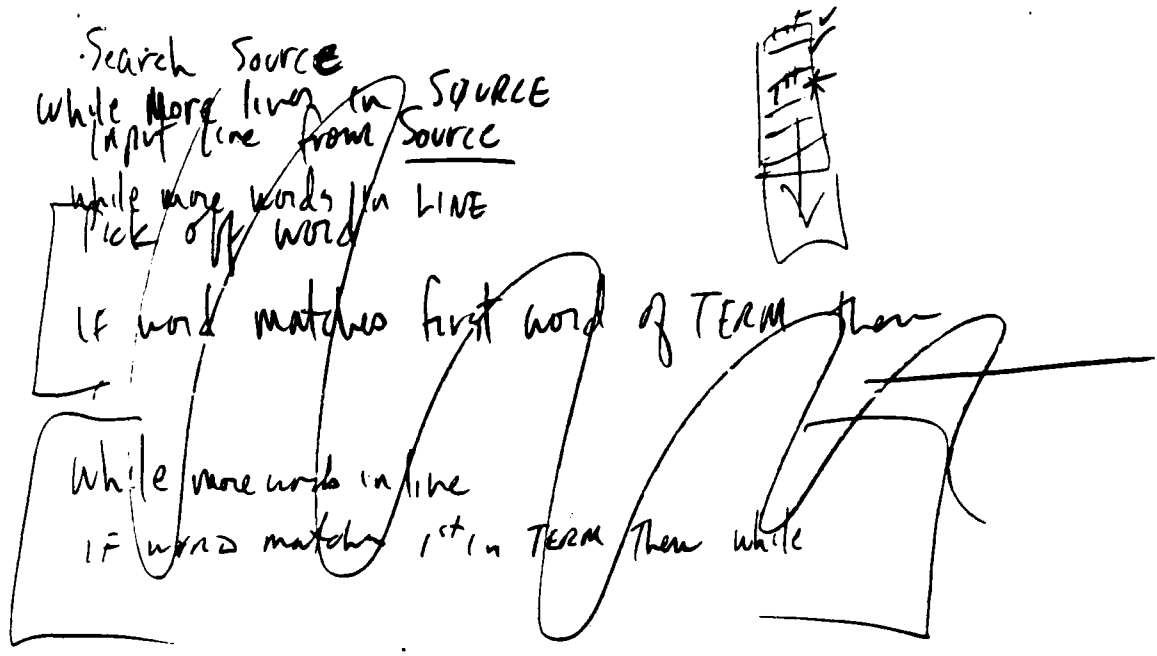 Search Source
while More lines in SOURCE
Input line from Source
while more words in LINE
Pick off word
IF word matches first word of TERM then
While more words in line
IF WORD matches 1st in TERM Then while